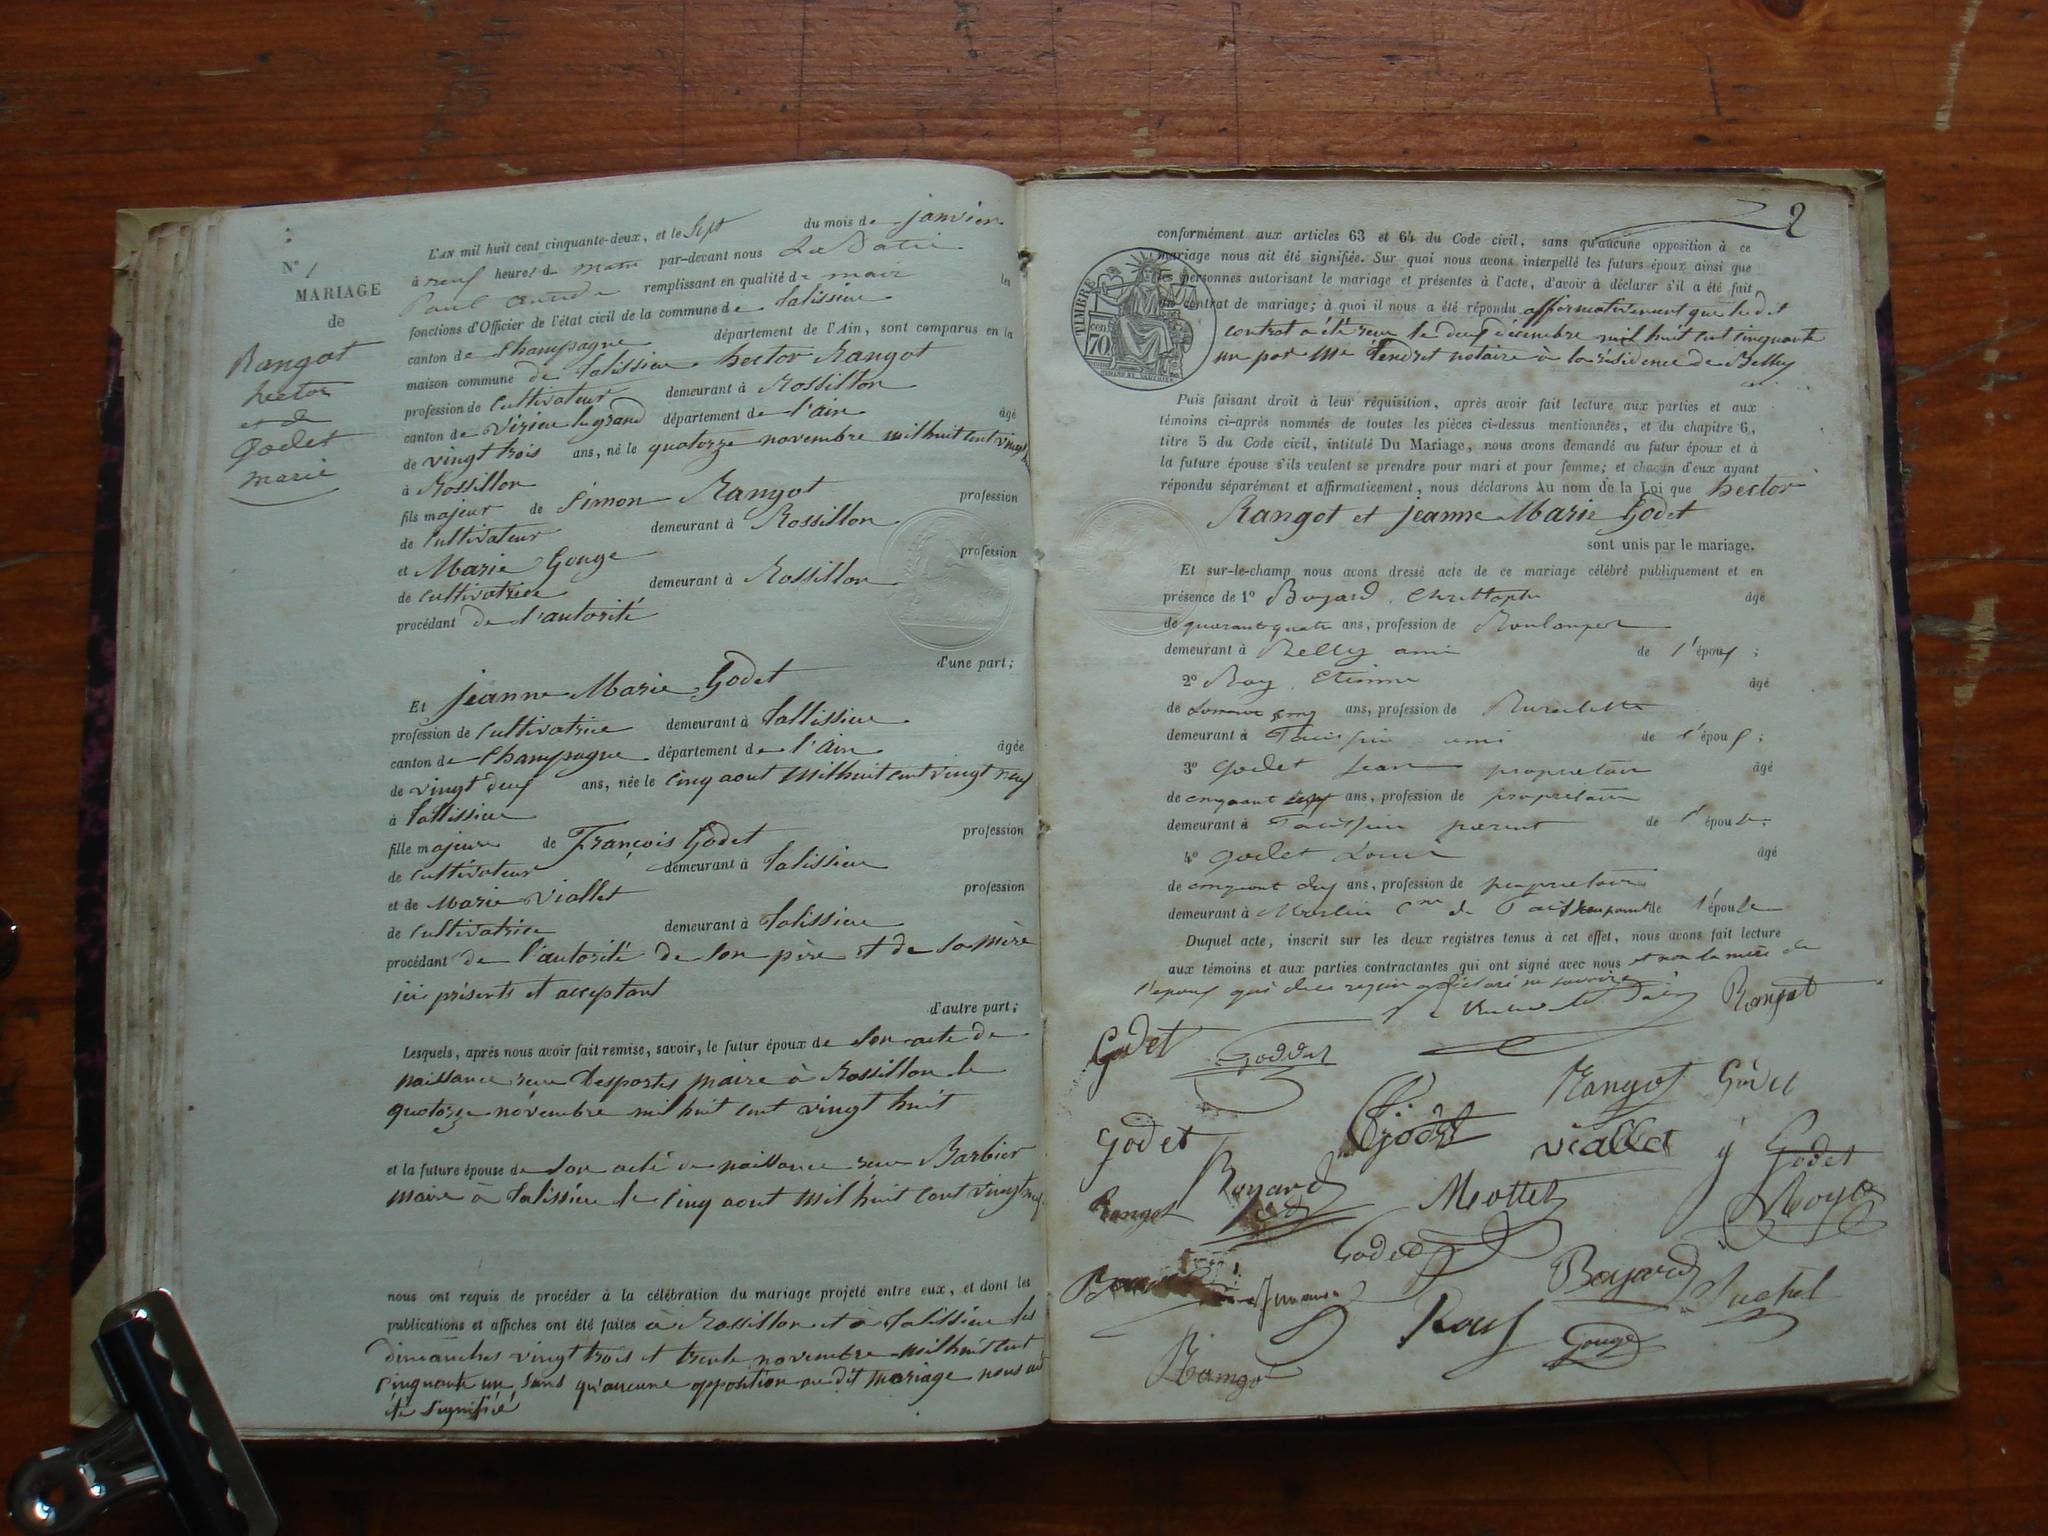 N° 1
MARIAGE
de
Rangot
hector
et de
Godet
marie
L'AN mil huit cent cinquante-deux, et le Sept du mois de janvier
à neuf heures du matin par-devant nous
Paul remplissant en qualité de maire les
fonctions d'Officier de l'état civil de la commune de Talissieu
canton de Champagne département de l'Ain, sont comparus en la
maison commune de Talissieu hector Rangot
profession de Cultivateur demeurant à Rossillon
canton de Virieu le grand département de l'ain âgé
de vingt trois ans, né le quatorze novembre mil huit cent vingt
à Rossillon
fils majeur de Simon Rangot profession
de Cultivateur demeurant à Rossillon
et Marie Gouge profession
de Cultivatrice demeurant à Rossillon
procédant de l'autorité
d'une part;
Et jeanne Marie Godet
profession de Cultivatrice demeurant à Tallissieu
canton de Champagne département de l'ain âgée
de vingt deux ans, née le cinq aout mil huit cent vingt neuf
à Tallissieu
fille majeure de François Godet profession
de Cultivateur demeurant à Talissieu
et de Marie Viallet profession
de Cultivatrice demeurant à Talissieu
procédant de l'autorité de son père et de sa mère
ici présents et acceptant
d'autre part;
Lesquels, après nous avoir fait remise, savoir, le futur époux de son acte de
naissance reçu Desportes maire à Rossillon le
quatorze novembre mil huit cent vingt huit
et la future épouse de son acte de naissance reçu Barbier
maire à Talissieu le cinq aout mil huit cent vingt neuf
nous ont requis de procéder à la célébration du mariage projeté entre eux, et dont les
publications et affiches ont été faites à Rossillon et à Talissieu les
dimanches vingt trois et trente novembre mil huit cent
cinquante un sans qu'aucune opposition au dit mariage nous ait
été signifié
2
TIMBRE
70 cent
conformément aux articles 63 et 64 du Code civil, sans qu'aucune opposition à ce
mariage nous ait été signifiée. Sur quoi nous avons interpellé les futurs époux ainsi que
les personnes autorisant le mariage et présentes à l'acte, d'avoir à déclarer s'il a été fait
un contrat de mariage; à quoi il nous a été répondu affirmativement que ledit
contrat a été reçu le deux décembre mil huit cent cinquante
un par Me Tendret notaire à la résidence de Belley
Puis faisant droit à leur réquisition, après avoir fait lecture aux parties et aux
témoins ci-après nommés de toutes les pièces ci-dessus mentionnées, et du chapitre 6,
titre 5 du Code civil, intitulé Du Mariage, nous avons demandé au futur époux et à
la future épouse s'ils veulent se prendre pour mari et pour femme; et chacun d'eux ayant
répondu séparément et affirmativement, nous déclarons Au nom de la Loi que hector
Rangot et jeanne Marie Godet
sont unis par le mariage.
Et sur-le-champ nous avons dressé acte de ce mariage célébré publiquement et en
présence de 1° Boyard Christophe âgé
de quarante quatre ans, profession de Boulanger
demeurant à Belley ami de l'époux;
2° Roy Etienne âgé
de ans, profession de
demeurant à ami de l'époux;
3° Godet Jean proprietaire âgé
de cinquant ans, profession de proprietaire
demeurant à parent de l'épouse;
4° Godet Louis âgé
de cinquant ans, profession de proprietaire
demeurant à de parent de l'épouse
Duquel acte, inscrit sur les deux registres tenus à cet effet, nous avons fait lecture
aux témoins et aux parties contractantes qui ont signé avec nous et non la mère de
l'époux qui
Rangot
Godet
Goddet
Rangot Godet
Godet
Godet
Viallet
J Godet
Rangot
Boyard
Mottet
Roy
Godet
Boyard
Suchet
Roux
Gouge
Rangot